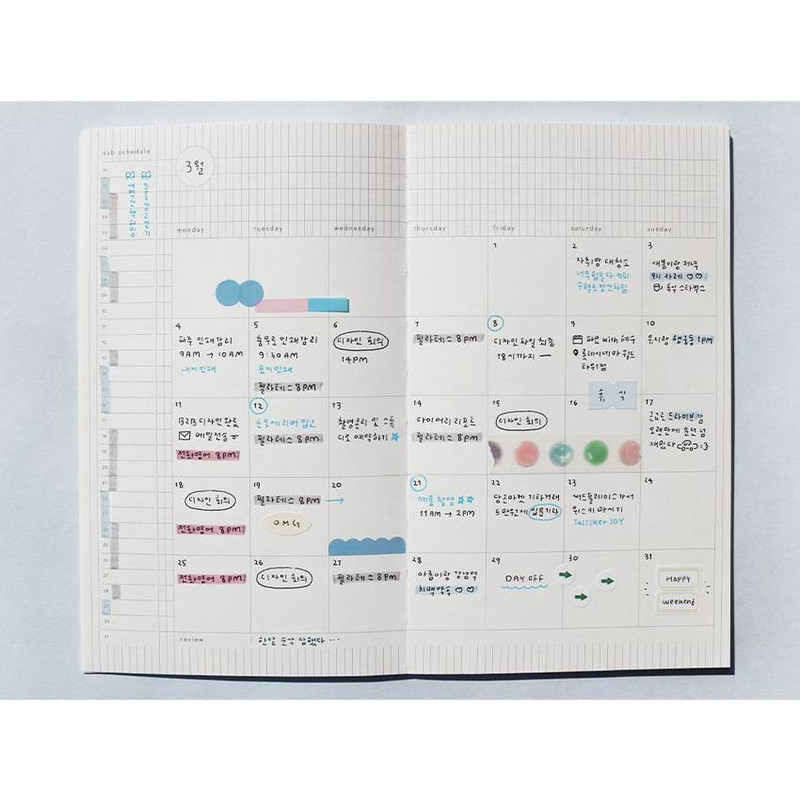 sub schedule
3월
monday
tuesday
wednesday
thursday
friday
saturday
sunday
1
2
자취방 대청소
3
새봄이랑 저녁
4
파주 인쇄감리
9AM → 10AM
내지인쇄
5
충무로 인쇄감리
9:30AM
표지인쇄
필라테스 8PM
6
디자인 회의
14PM
7
필라테스 8PM
8
디자인파일 최종
18시까지
9
타워점
10
유지랑 행궁동 1PM
11
디자인 완료
메일전송
전화영어 8PM
12
입고
필라테스 8PM
13
촬영준비 및 스튜
디오 예약하기
14
다이어리 리포트
필라테스 8PM
15
디자인 회의
16
휴식
17
드라이브
오랜만에 운전
재밌다 :3
18
디자인 회의
전화영어 8PM
19
필라테스 8PM
OMG
20
21
제품촬영
11AM → 2PM
22
당근마켓 기타거래
5만원에
23
위스키 마시기
Talisker 10Y
24
25
전화영어 8PM
26
디자인 회의
27
필라테스 8PM
28
아름이랑 강남역
치맥약속
29
DAY OFF
30
31
HAPPY
weekend
review
한달 순삭 당했다 ...